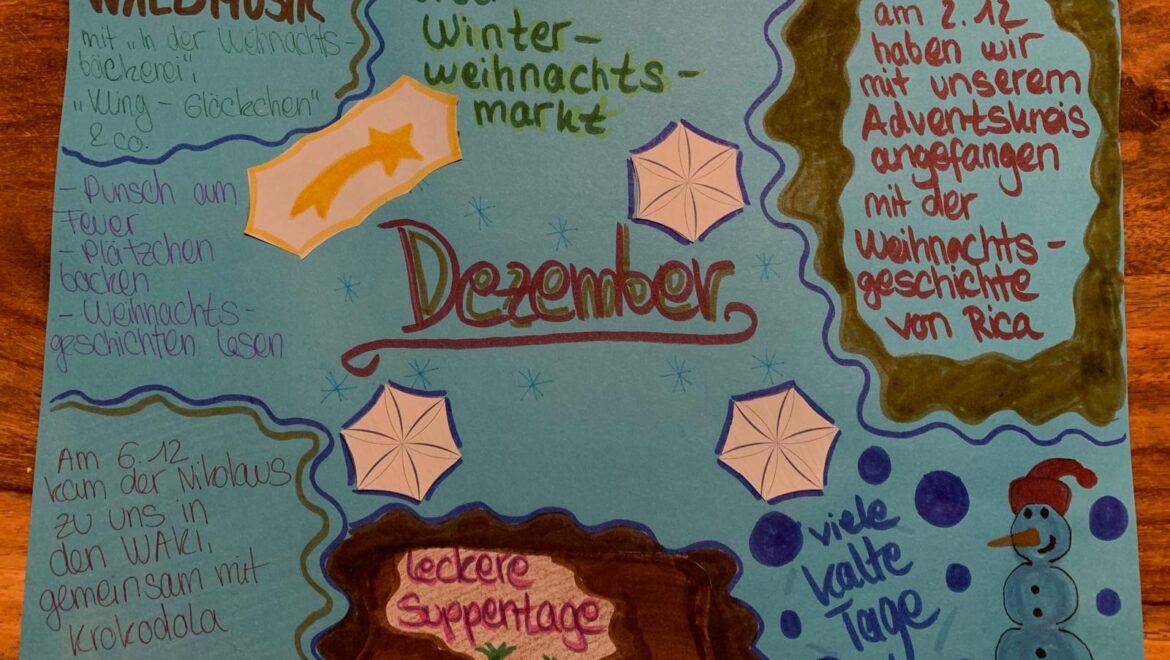 WALDMUSIK
mit "In der Weihnachts-
bäckerei",
"Kling - Glöckchen"
& co.
Winter-
weihnachts-
markt
am 2.12
haben wir
mit unserem
Adventskreis
angefangen
mit der
Weihnachts-
geschichte
von Rica
- Punsch am
Feuer
- Plätzchen
backen
- Weihnachts-
geschichten lesen
Dezember
Am 6.12
kam der Nikolaus
zu uns in
den WAKI,
gemeinsam mit
Krokodola
leckere
Suppentage
viele
kalte
Tage